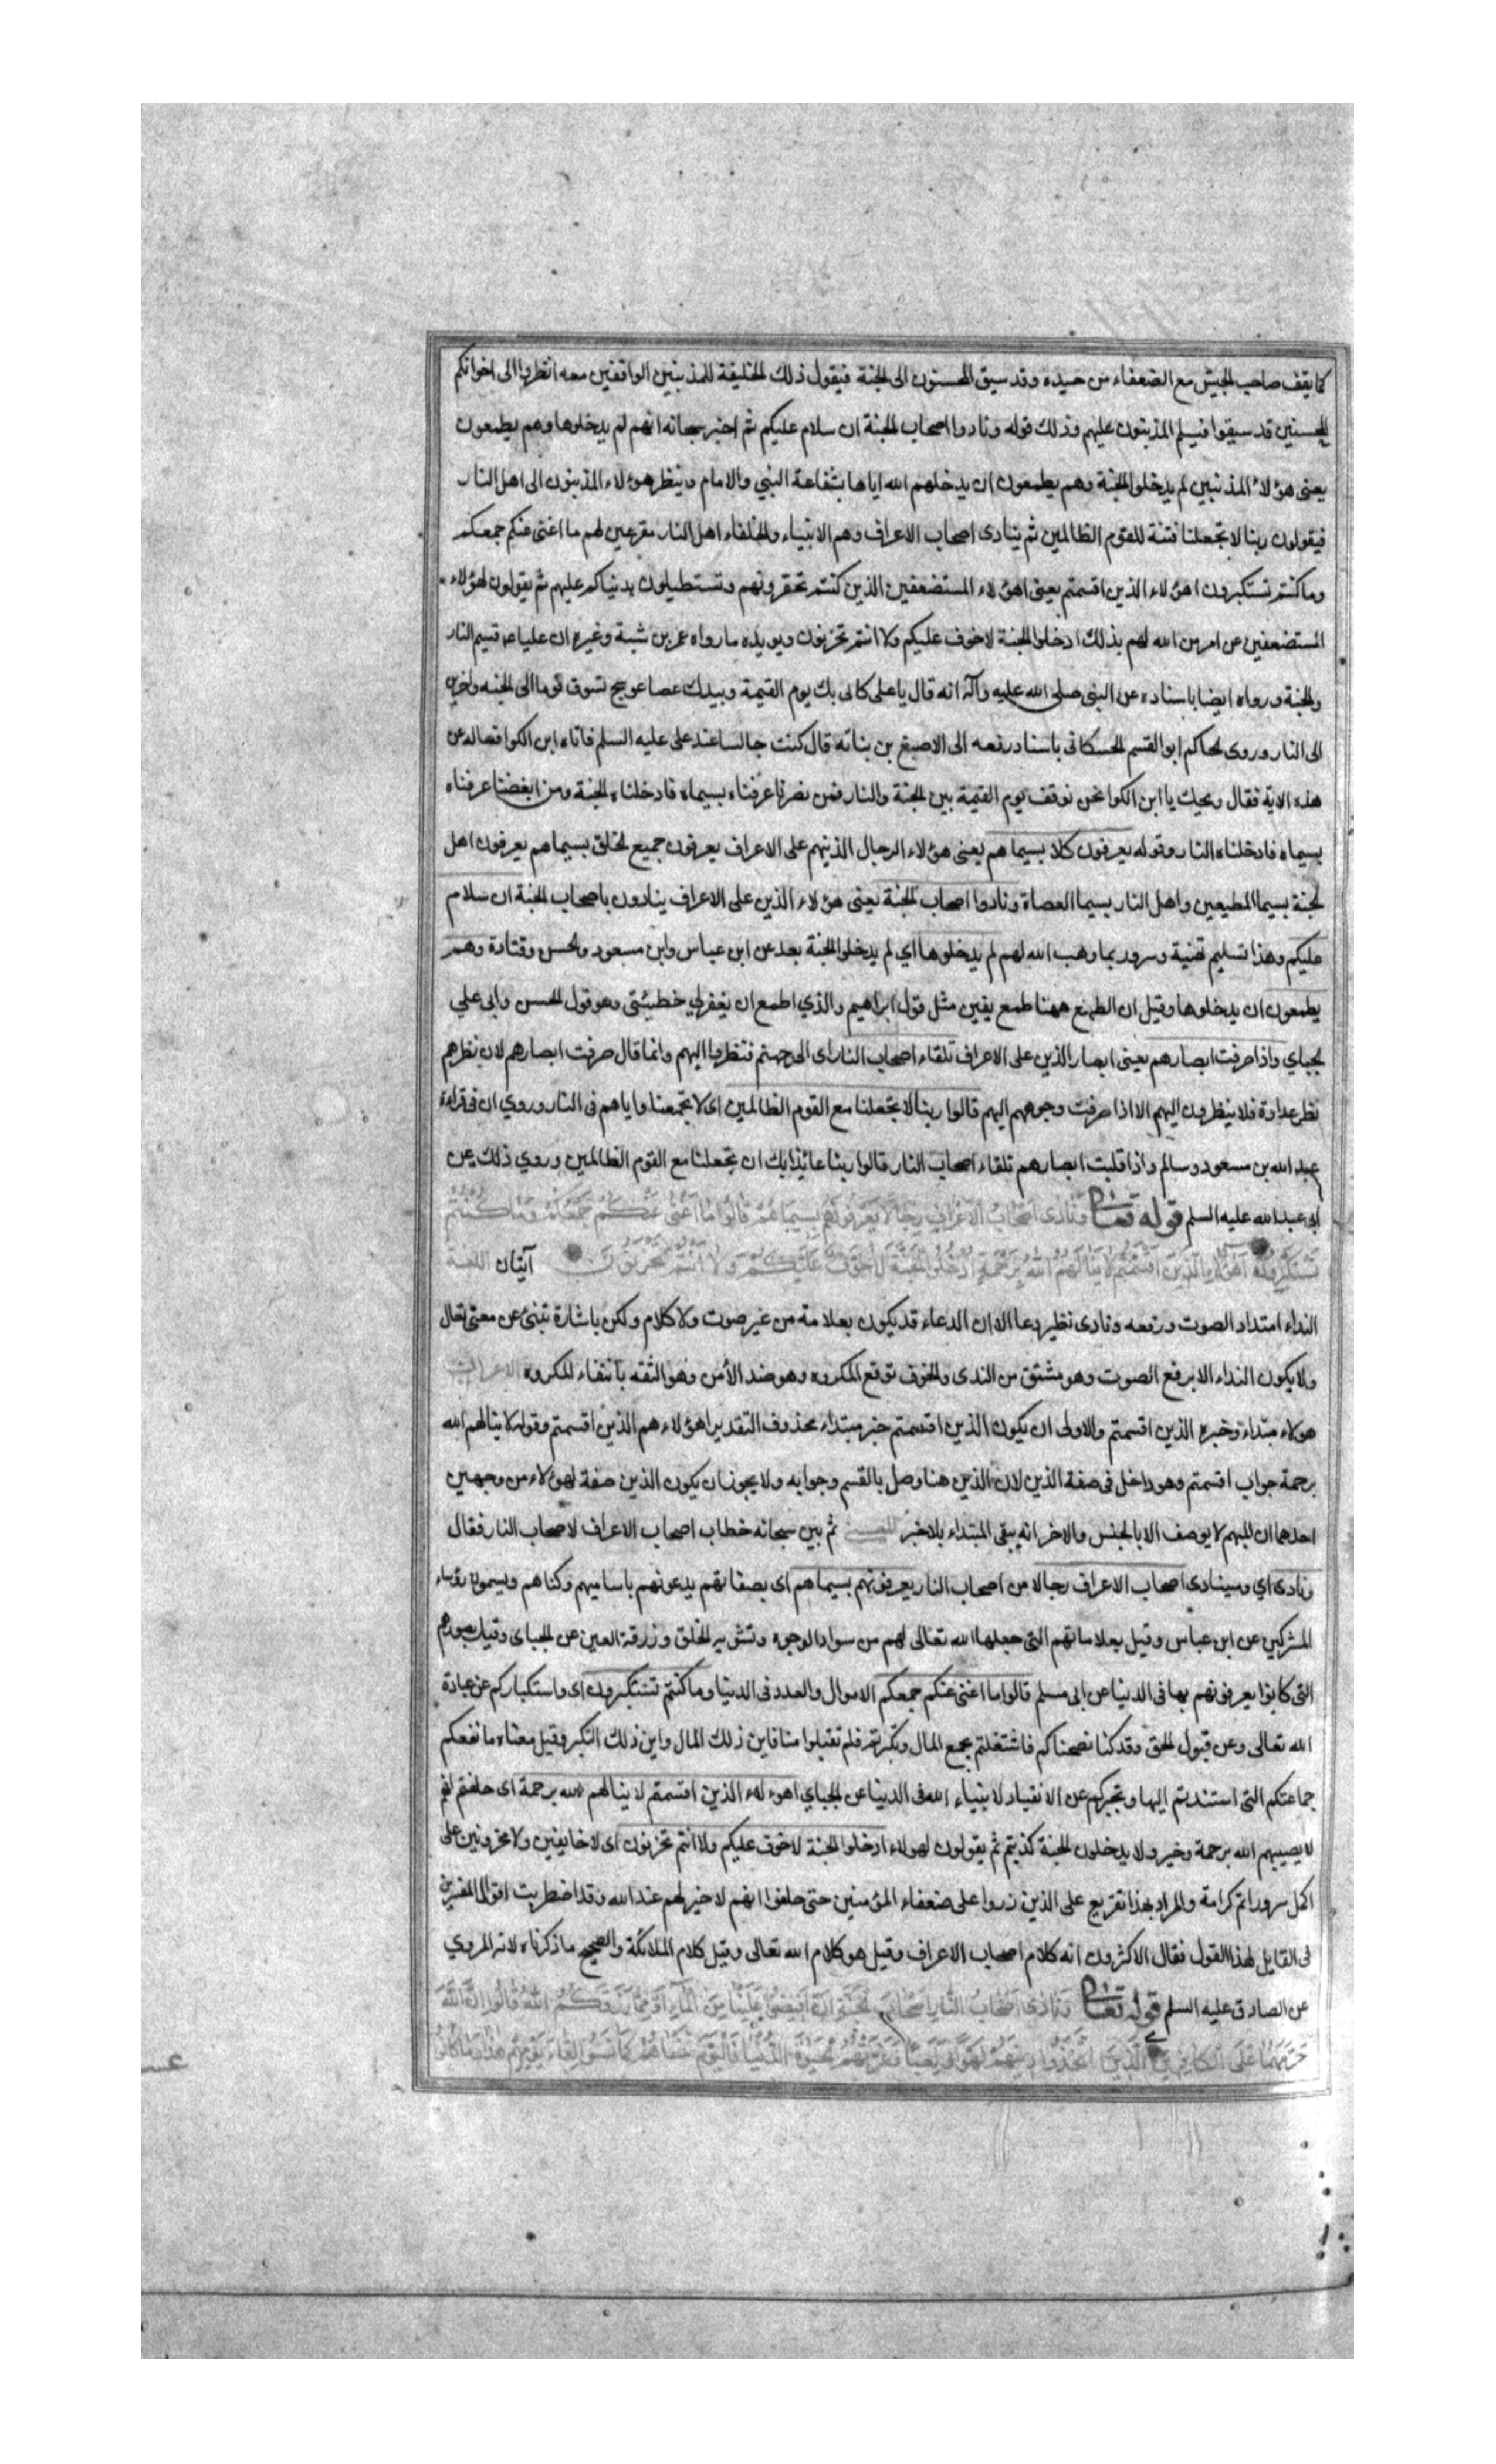 كما يقف صاحب الجيش مع الضعفاء من جنده وقد سيق المحسنون الى الجنة فيقول ذلك الخليفة للمذنبين الواقفين معه انظروا الى اخوانكم
المحسنين قد سيقوا فيسلم المذنبون عليهم وذلك قوله ونادوا اصحاب الجنة ان سلام عليكم ثم اخبر سبحانه انهم لم يدخلوها وهم يطمعون
يعنى هؤلاء المذنبين لم يدخلوا الجنة وهم يطمعون ان يدخلهم الله اياها بشفاعة النبي والامام وينظر هؤلاء المذنبون الى اهل النار
فيقولون ربنا لا تجعلنا فتنة للقوم الظالمين ثم ينادى اصحاب الاعراف وهم الانبياء والخلفاء اهل النار مقرعين لهم ما اغنى عنكم جمعكم
وما كنتم تستكبرون اهؤلاء الذين اقسمتم يعنى اهؤلاء المستضعفين الذين كنتم تحقرونهم وتستطيلون بدنياكم عليهم ثم يقولون لهؤلاء
المستضعفين عن امر من الله لهم بذلك ادخلوا الجنة لا خوف عليكم ولا انتم تحزنون ويويده ما رواه عمر بن شبة وغيره ان عليا ع قسيم النار
والجنة ورواه ايضا باسناده عن النبى صلى الله عليه وآله انه قال يا على كانى بك يوم القيمة وبيدك عصا عوسج تسوق قوما الى الجنه واخرين
الى النار وروى الحاكم ابو القسم الحسكانى باسناد رفعه الى الاصبغ بن بناته قال كنت جالسا عند على عليه السلم فاتاه ابن الكوا فساله عن
هذه الاية فقال ويحك يا ابن الكوا نحن نوقف يوم القيمة بين الجنة والنار فمن نصرنا عرفناه بسيماه فادخلناه الجنة ومن ابغضنا عرفناه
بسيماه فادخلناه النار وقوله يعرفون كلا بسيماهم يعنى هؤلاء الرجال الذينهم على الاعراف يعرفون جميع الخلق بسيماهم يعرفون اهل
الجنة بسيما المطيعين واهل النار بسيما العصاة ونادوا اصحاب الجنة يعنى هؤلاء الذين على الاعراف ينادون باصحاب الجنة ان سلام
عليكم وهذا تسليم تهنية وسرور بما وهب الله لهم لم يدخلوها اي لم يدخلوا الجنة بعد عن ابن عباس وابن مسعود والحسن وقتادة وهم
يطمعون ان يدخلوها وقيل ان الطمع ههنا طمع يقين مثل قول ابراهيم والذي اطمع ان يغفر لي خطيئتى وهو قول الحسن وابى علي
الجباي واذا صرفت ابصارهم يعنى ابصار الذين على الاعراف تلقاء اصحاب النار اى الى جهتم فنظروا اليهم وانما قال صرفت ابصارهم لان نظرهم
نظر عداوة فلا ينظرون اليهم الا اذا صرفت وجوههم اليهم قالوا ربنا لا تجعلنا مع القوم الظالمين اى لا تجمعنا واياهم فى النار وروي ان فى قراءة
عبد الله بن مسعود وسالم واذا قلبت ابصارهم تلقاء اصحاب النار قالوا ربنا عائذا بك ان تجعلنا مع القوم الظالمين وروي ذلك عن
ابى عبد الله عليه السلم قوله تعالى ونادى اصحاب الاعراف رجالا يعرفونهم بسيماهم قالوا ما اغنى عنكم جمعكم وما كنتم
تستكبرون اهؤلاء الذين اقسمتم لا ينالهم الله برحمة ادخلوا الجنة لا خوف عليكم ولا انتم تحزنون آيتان اللغة
النداء امتداد الصوت ورفعه ونادى نظير دعا الا ان الدعاء قد يكون بعلامة من غير صوت ولا كلام ولكن باشارة تنبئ عن معنى تعال
ولا يكون النداء الا برفع الصوت وهو مشتق من الندى والخوف توقع المكروه وهو ضد الأمن وهو الثقه بانتفاء المكروه الاعراب
هولاء مبتداء وخبره الذين اقسمتم والاولى ان يكون الذين اقسمتم خبر مبتداء محذوف التقدير اهؤلاء هم الذين اقسمتم وقوله لا ينالهم الله
برحمة جواب اقسمتم وهو داخل فى صفة الذين لان الذين هنا وصل بالقسم وجوابه ولا يجوز ان يكون الذين صفة لهؤلاء من وجهين
احدهما ان المبهم لا يوصف الا بالجنس والاخر انه يبقى المبتداء بلا خبر المعنى ثم بين سبحانه خطاب اصحاب الاعراف لاصحاب النار فقال
ونادى اي وسينادى اصحاب الاعراف رجالا من اصحاب النار يعرفونهم بسيماهم اى بصفاتهم يدعونهم باساميهم وكناهم ويسمون رؤساء
المشركين عن ابن عباس وقيل بعلاماتهم التى جعلها الله تعالى لهم من سواد الوجوه وتشويه الخلق وزرقة العين عن الجباى وقيل بصورهم
التى كانوا يعرفونهم بها فى الدنيا عن ابى مسلم قالوا ما اغنى عنكم جمعكم الاموال والعدد فى الدنيا وما كنتم تستكبرون اى واستكباركم عن عبادة
الله تعالى وعن قبول الحق وقد كنا نصحناكم فاشتغلتم بجمع المال وتكبرتم فلم تقبلوا منا فاين ذلك المال واين ذلك التكبر وقيل معناه ما نفعكم
جماعتكم التى استندتم اليها وتجبركم عن الانقياد لانبياء الله فى الدنيا عن الجباي اهوءلاء الذين اقسمتم لا ينالهم الله برحمة اى حلفتم انهم
لا يصيبهم الله برحمة وخير ولا يدخلون الجنة كذبتم ثم يقولون لهولاء ادخلوا الجنة لا خوف عليكم ولا انتم تحزنون اى لا خايفين ولا محزونين على
اكمل سرور واتم كرامة والمراد بهذا تقريع على الذين زروا على ضعفاء المؤمنين حتى حلفوا انهم لا خير لهم عند الله وقد اضطربت اقوال المفسرين
فى القايل لهذا القول فقال الاكثرون انه كلام اصحاب الاعراف وقيل هو كلام الله تعالى وقيل كلام الملائكة والصحيح ما ذكرناه لانه المروي
عن الصادق عليه السلم قوله تعالى ونادى اصحاب النار اصحاب الجنة ان افيضوا علينا من الماء او مما رزقكم الله قالوا ان الله
حرمهما على الكافرين الذين اتخذوا دينهم لهوا ولعبا وغرتهم الحيوة الدنيا فاليوم ننساهم كما نسوا لقاء يومهم هذا وما كانوا